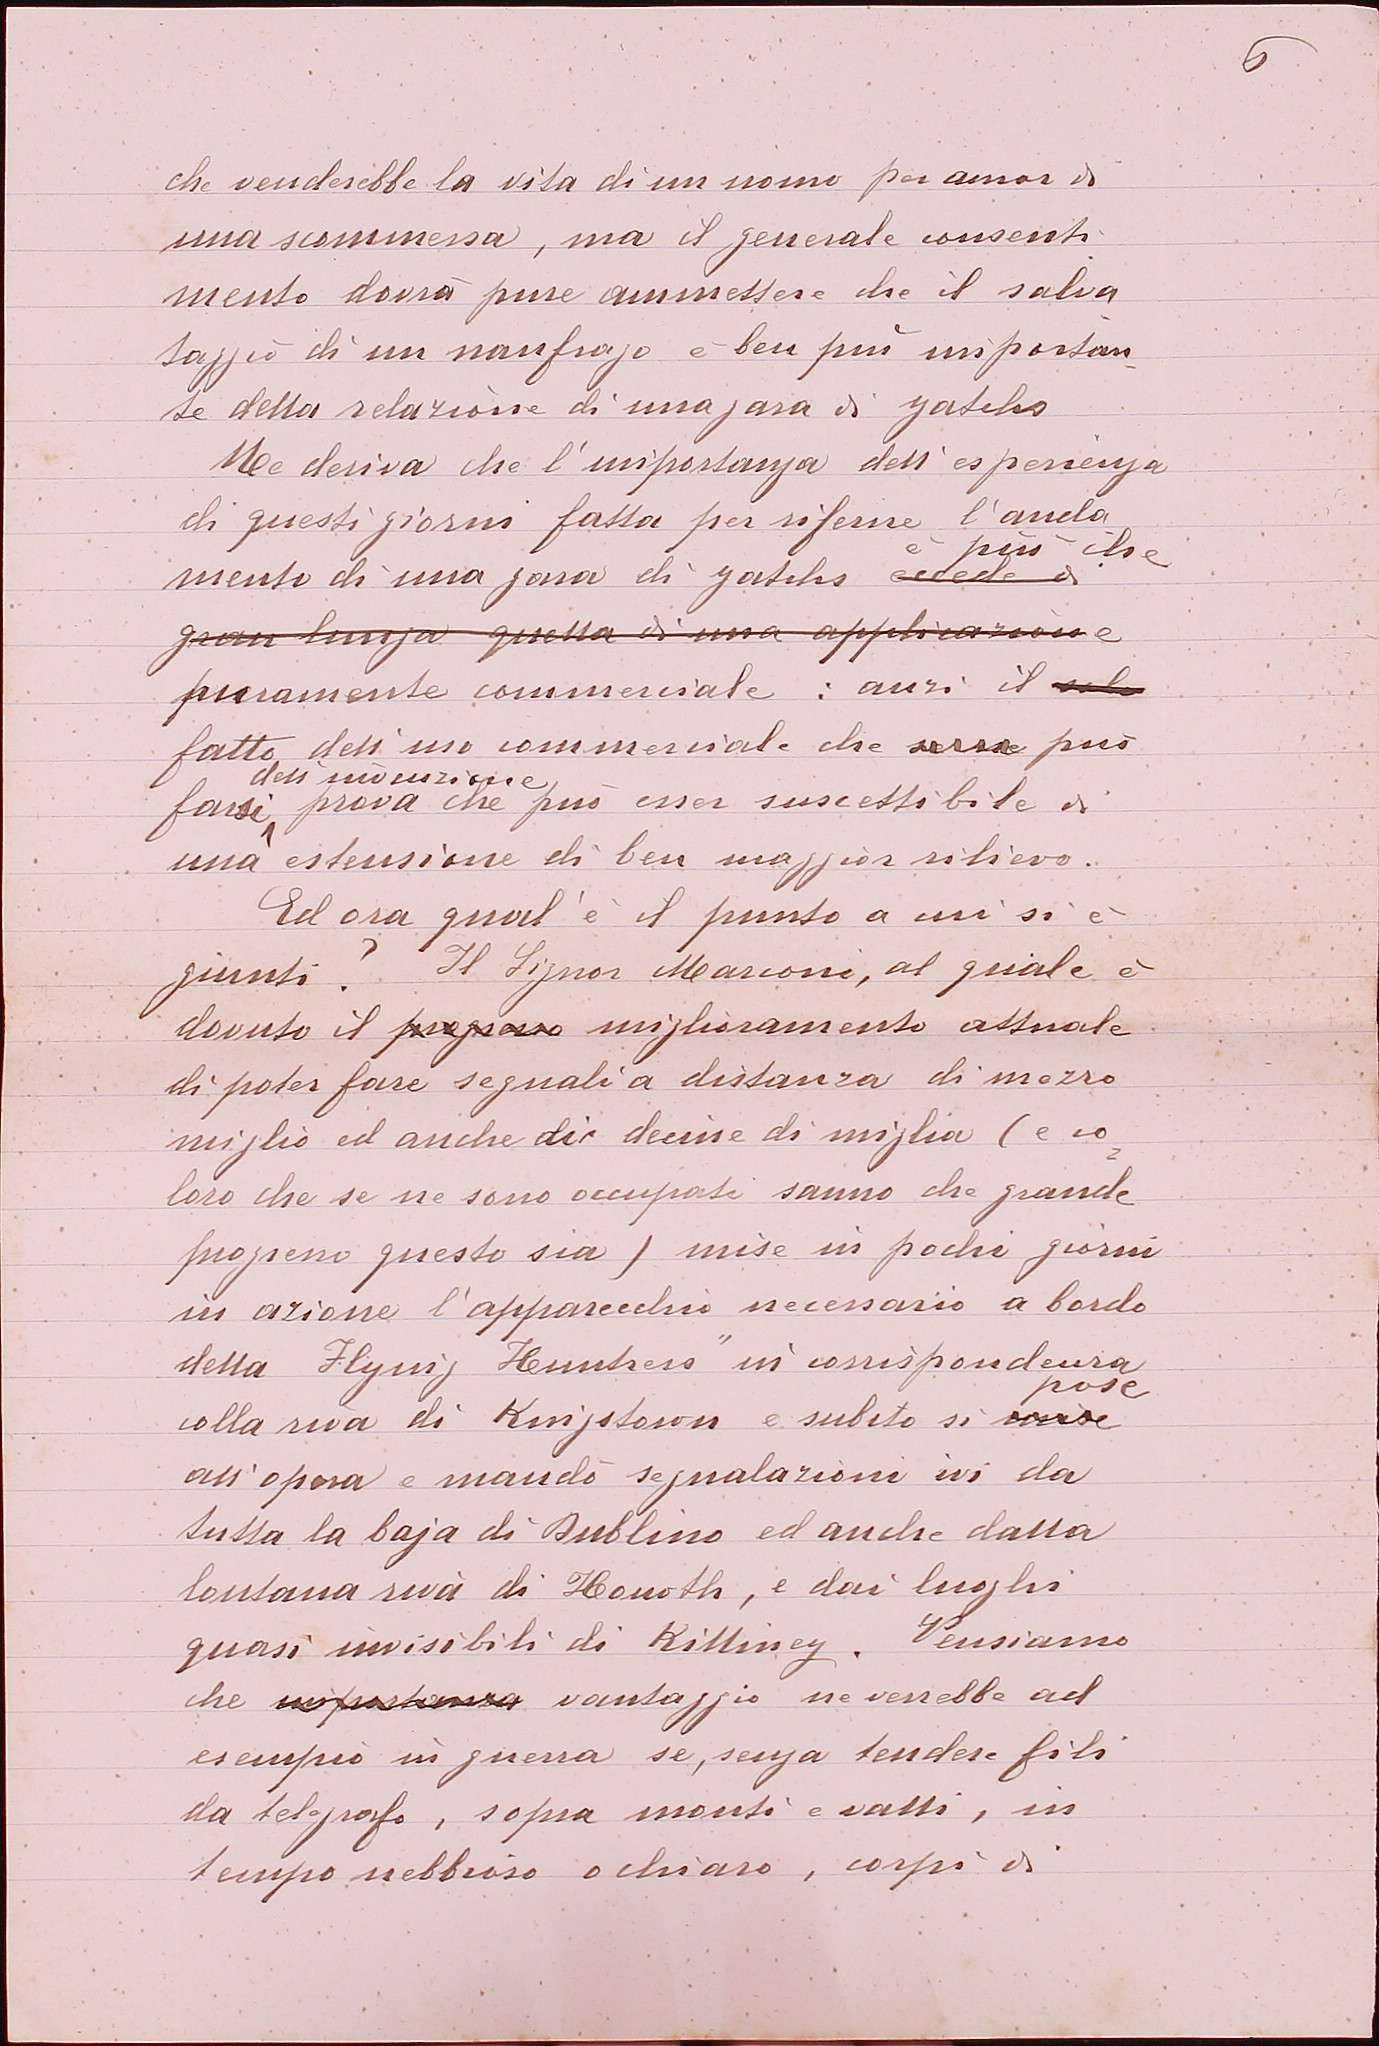 6
che venderebbe la vita di un uomo per amor di
una scommessa, ma il generale consenti
mento dovrà pure ammettere che il salva
taggio di un naufrago è ben più importan-
te della relazione di una gara di yatchs
Ne deriva che l'importanza dell'esperienza
di questi giorni fatta per riferire l'anda
è più che
mento di una gara di yatchs eccede di
gran lunga quella di una applicazione
puramente commerciale : anzi il solo
fatto dell'uso commerciale che serve può
dell'invenzione
farsi prova che può esser suscettibile di
una estensione di ben maggior rilievo.
Ed ora qual'è il punto a cui si è
giunti? Il Signor Marconi, al quale è
dovuto il progresso miglioramento attuale
di poter fare segnali a distanza di mezzo
miglio ed anche di decine di miglia (e co
loro che se ne sono occupati sanno che grande
progresso questo sia) mise in pochi giorni
in azione l'apparecchio necessario a bordo
della Flying Huntress" in corrispondenza
pose
colla riva di Kingstown e subito si
all'opera e mandò segnalazioni ivi da
tutta la baja di Dublino ed anche dalla
lontana riva di Howoth, e dai luoghi
quasi invisibili di Killiney. Pensiamo
che importanza vantaggio ne verrebbe ad
esempio in guerra se, senza tendere fili
da telegrafo, sopra monti e valli, in
tempo nebbioso o chiaro, corpi di